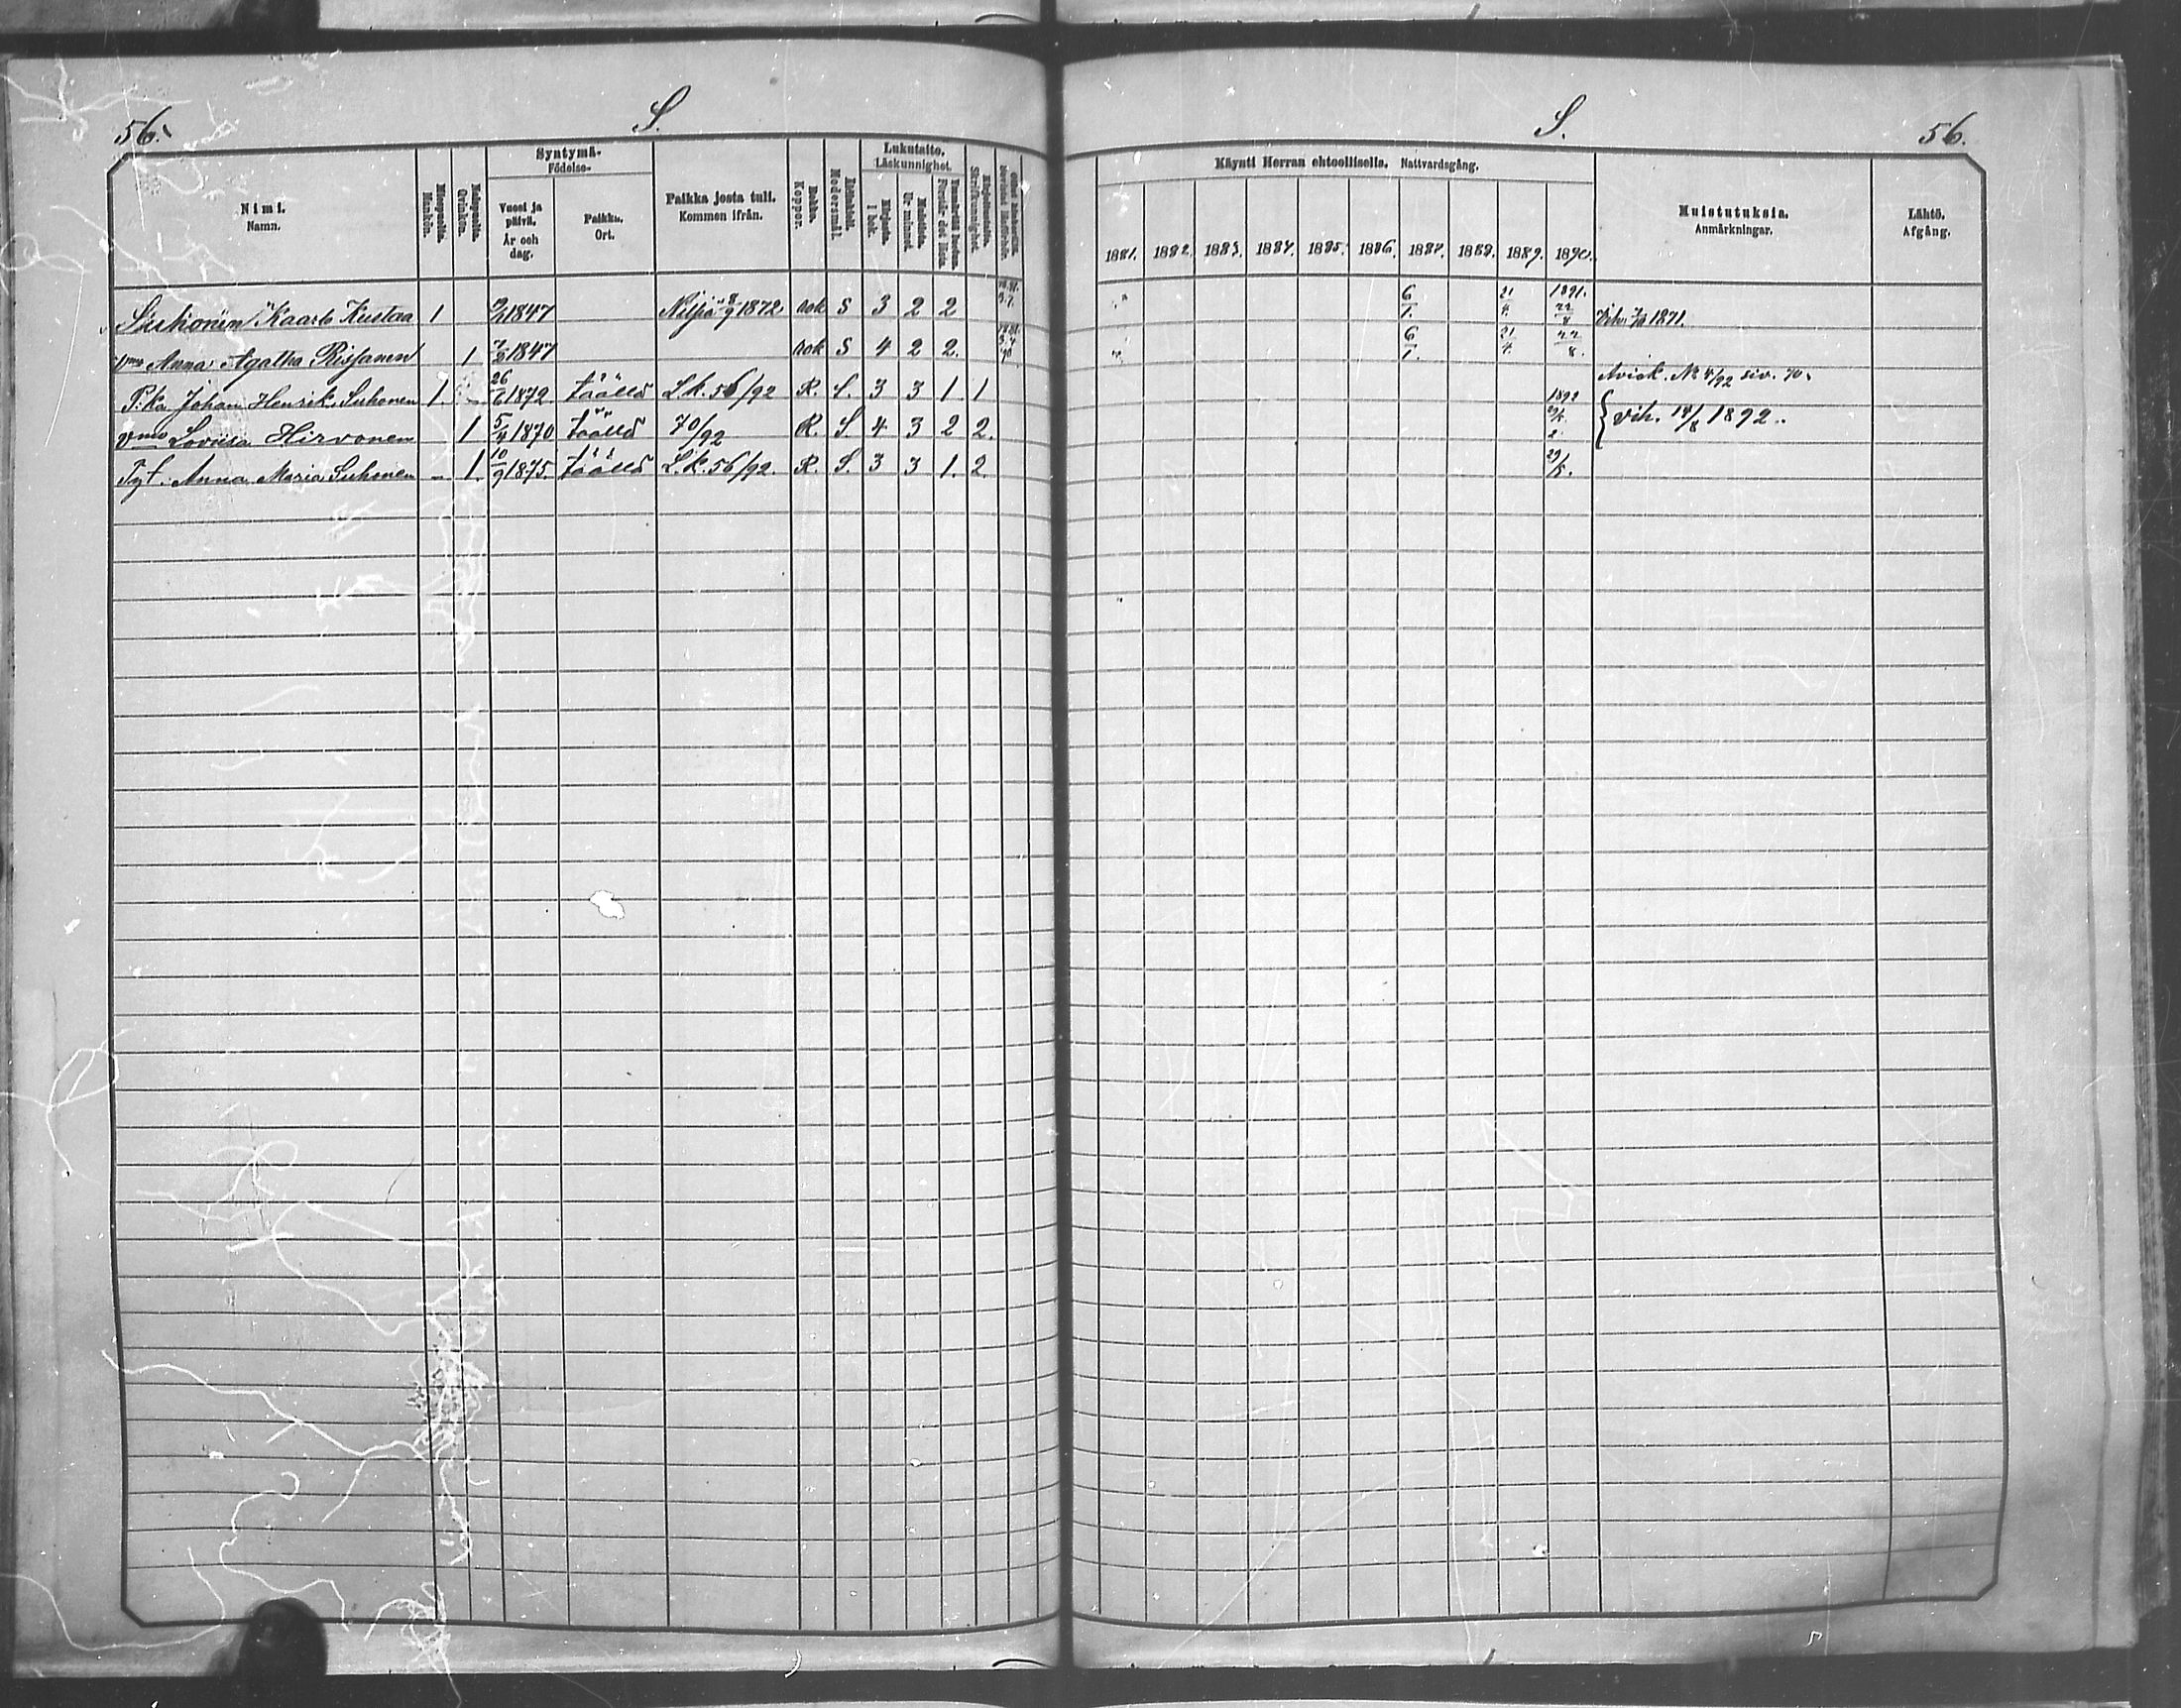 56.
S.
S.
56.
Nimi.
Namn.
Miespuolia.
Mankön.
Naispuolia.
Qvinkön.
Syntymä-
Födelse-
Vuosi ja päivä.
År och dag.
Paikka.
Ort.
Paikka josta tuli.
Kommen ifrån.
Rokko.
Koppor.
Modersmål.
Lukutaito.
Läskunnighet.
Kirjasta.
I bok.
Muistista.
Ur minnet.
Förstår det lästa.
Kirjoitustaito.
Skrifkunnighet.
Käynti Herran ehtoollisella. Nattvardsgång.
1881. 1882. 1883. 1884. 1885. 1886. 1887. 1888. 1889. 1890.
Muistutuksia.
Anmärkningar.
Lähtö.
Afgång.
Suhonen Kaarlo Kustaa 1 1847 Nilsiä 8/9 1872 rok S 3 2 2 6/1. 21/4. 1891. 22/8 Vih. 1871.
Vmo Anna Agatha Rissanen 1 1847 rok S 4 2 2. 6/1. 21/4. 22/8.
P:ka Johan Henrik Suhonen 1. 26/6 1872 täällä L.k. 56/92 R. S. 3 3 1 1 1892 Aviok. No 4/92 siv. 70.
vmo Lovisa Hirvonen 1 5/4 1870 täällä 70/92 R. S. 4 3 2 2. Vih. 14/8 1892.
Tyt. Anna Maria Suhonen - 1. 10/9 1875. täällä L.k. 56/92. R. S. 3 3 1. 2. 29/5.